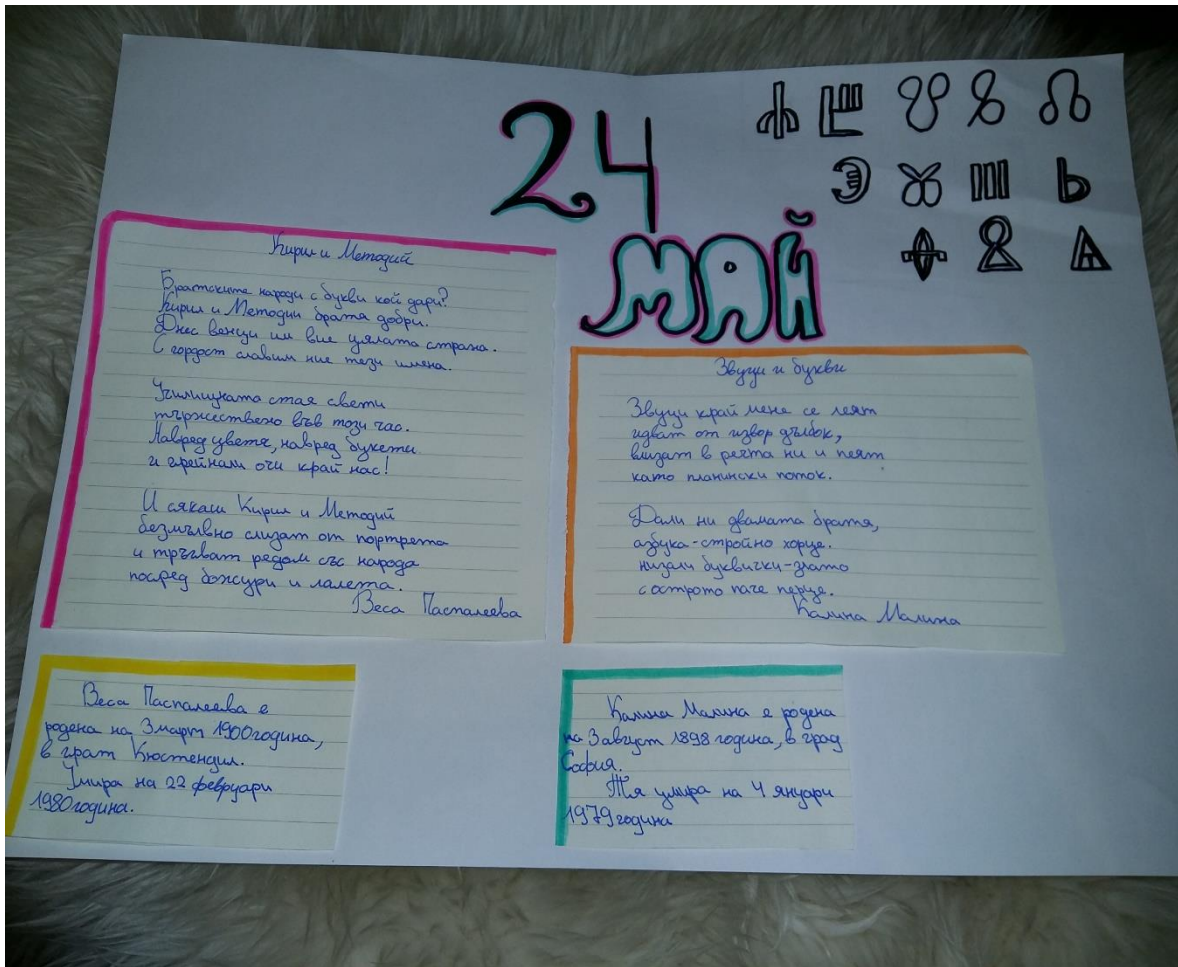 24
МАЙ
Кирил и Методий
Братските народи с букви кой дари?
Кирил и Методии братя добри.
Днес венци им вие цялата страна.
С гордост славим ние тези имена.
Училищната стая свети
тържествено във този час.
Навред цветя, навред букети
и грейнали очи край нас!
И сякаш Кирил и Методий
безмълвно слизат от портрета
и тръгват редом със народа
посред божури и лалета.
Веса Паспалеева
Звуци и букви
Звуци край мене се леят
идват от извор дълбок,
влизат в речта ни и пеят
като планински поток.
Дали ни двамата братя,
азбука-стройно хорце.
низали буквички-злато
с острото паче перце.
Калина Малина
Веса Паспалеева е
родена на 3март 1900година,
в грат Кюстендил.
Умира на 22 февруари
1980година.
Калина Малина е родена
на 3август 1898 година, в град
София.
Тя умира на 4 януари
1979година